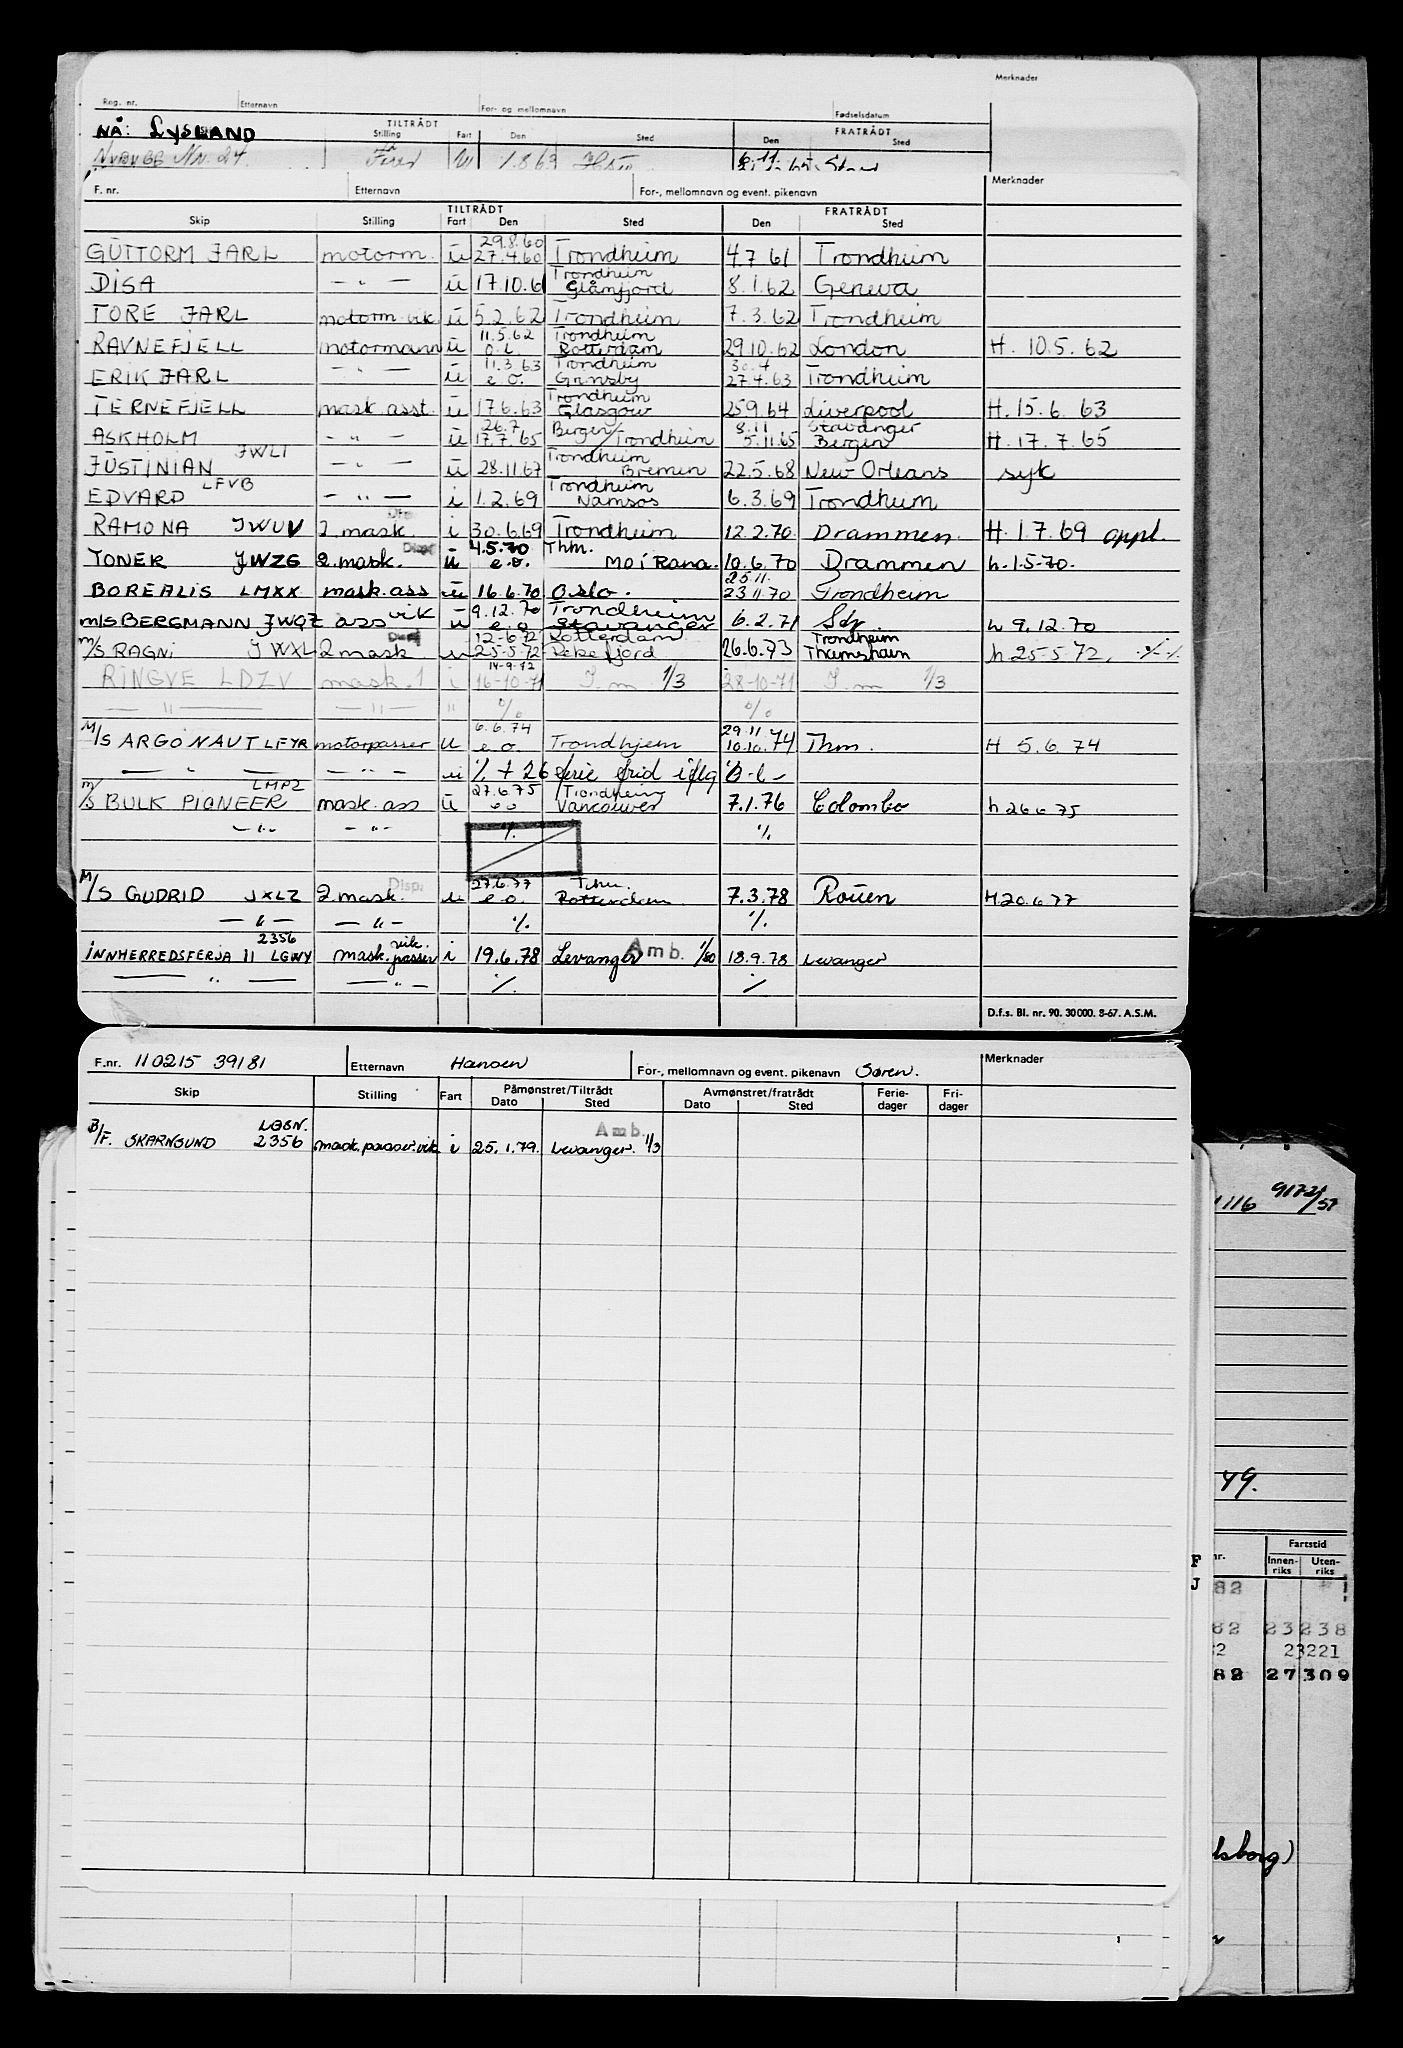 Merknader
Reg. nr. Etternavn For- og mellomnavn Fødselsdatum
TILTRÅDT FRATRÅDT
NÅ: LYSLAND Stilling Fart Den Sted Den Sted
Nybygg Nr. 24. 1.8.63 6.11.65
F. nr. Etternavn For-, mellomnavn og event. pikenavn Merknader
TILTRÅDT FRATRÅDT
Skip Stilling Fart Den Sted Den Sted
29.8.60
GUTTORM JARL motorm. u 27.4.60 Trondheim 4.7.61 Trondheim
Trondheim
DISA — " — u 17.10.61 Glåmfjord 8.1.62 Geneva
TORE JARL motorm. vik. u 5.2.62 Trondheim 7.3.62 Trondheim
11.5.62 Trondheim
RAVNEFJELL motormann u o.l. Rotterdam 29.10.62 London H. 10.5.62
11.3.63 Trondheim 30.4
ERIK JARL — " — u e.o. Grimsby 27.4.63 Trondheim
Trondheim
TERNEFJELL mask.asst. u 17.6.63 Glasgow 25.9.64 Liverpool H. 15.6.63
26.7 Bergen 8.11 Stavanger
ASKHOLM — " — u 17.7.65 /Trondheim 5.11.65 Bergen H. 17.7.65
JWLI Trondheim
JUSTINIAN — " — u 28.11.67 Bremen 22.5.68 New-Orleans syk
LFVB Trondheim
EDVARD — " — i 1.2.69 Namsos 6.3.69 Trondheim
RAMONA JWUV 2 mask. i 30.6.69 Trondheim 12.2.70 Drammen. H. 1.7.69 oppl.
Disp 4.5.70 Thm.
TONEK JWZG 2.mask. u e.o. Mo i Rana. 10.6.70 Drammen h. 1-5-70.
25.11.
BOREALIS LMXX mask.ass u 16.6.70 Oslo. 23.11.70 Trondheim
vik 9.12.70 Trondheim
m/s BERGMANN JWQZ ass u e.o Stavanger 6.2.71 h 9.12.70
Disp 12-6-72 Rotterdam Trondheim
M/S RAGNI JWXL 2 mask u 25-5-72 Rekefjord 26.6.73 Thamshavn h 25-5-72. -%-%
14-9-72
RINGVE LDZV mask.1 i 16-10-71 I m 1/3 28-10-71 I m 1/3
— " — — " — " % %
6.6.74 29.11
M/S ARGONAUT LFYR motorpasser u e.o. Trondhjem 10.10.74 Thm. H 5.6.74
— " — — " — u % + 26 ferie frid iflg
LMPZ 27.6.75 Trondheim
m/s BULK PIONEER mask.ass u e o Vancouver 7.1.76 Colombo h 26 6 75
— " — — " — % %
Disp. 27.6.77 Thm.
M/S GUDRID JXLZ 2.mask. u e.o. Rotterdam 7.3.78 Rouen H 20.6.77
— " — — " — % %
2356 vik.
INNHERREDSFERJA II LGWY mask.passer i 19.6.78 Levanger Amb. 1/80 18.9.78 Levanger
— " — — " — % %
D.f.s. Bl. nr. 90. 30000. 8-67. A.S.M.
F.nr. 110215 39181 Etternavn Hansen For-, mellomnavn og event. pikenavn Søren. Merknader
Skip Stilling Fart Påmønstret/Tiltrådt Avmønstret/fratrådt Ferie- Fri-
Dato Sted Dato Sted dager dager
LGSN. Amb.
B/F. SKARNSUND 2356 mask.passer.vik i 25.1.79. Levanger. 1/3
1116 9172/57
49.
nr. Fartstid
Innen-riks Uten-riks
F
J
82
82 23238
2 23221
82 27309
lsborg)